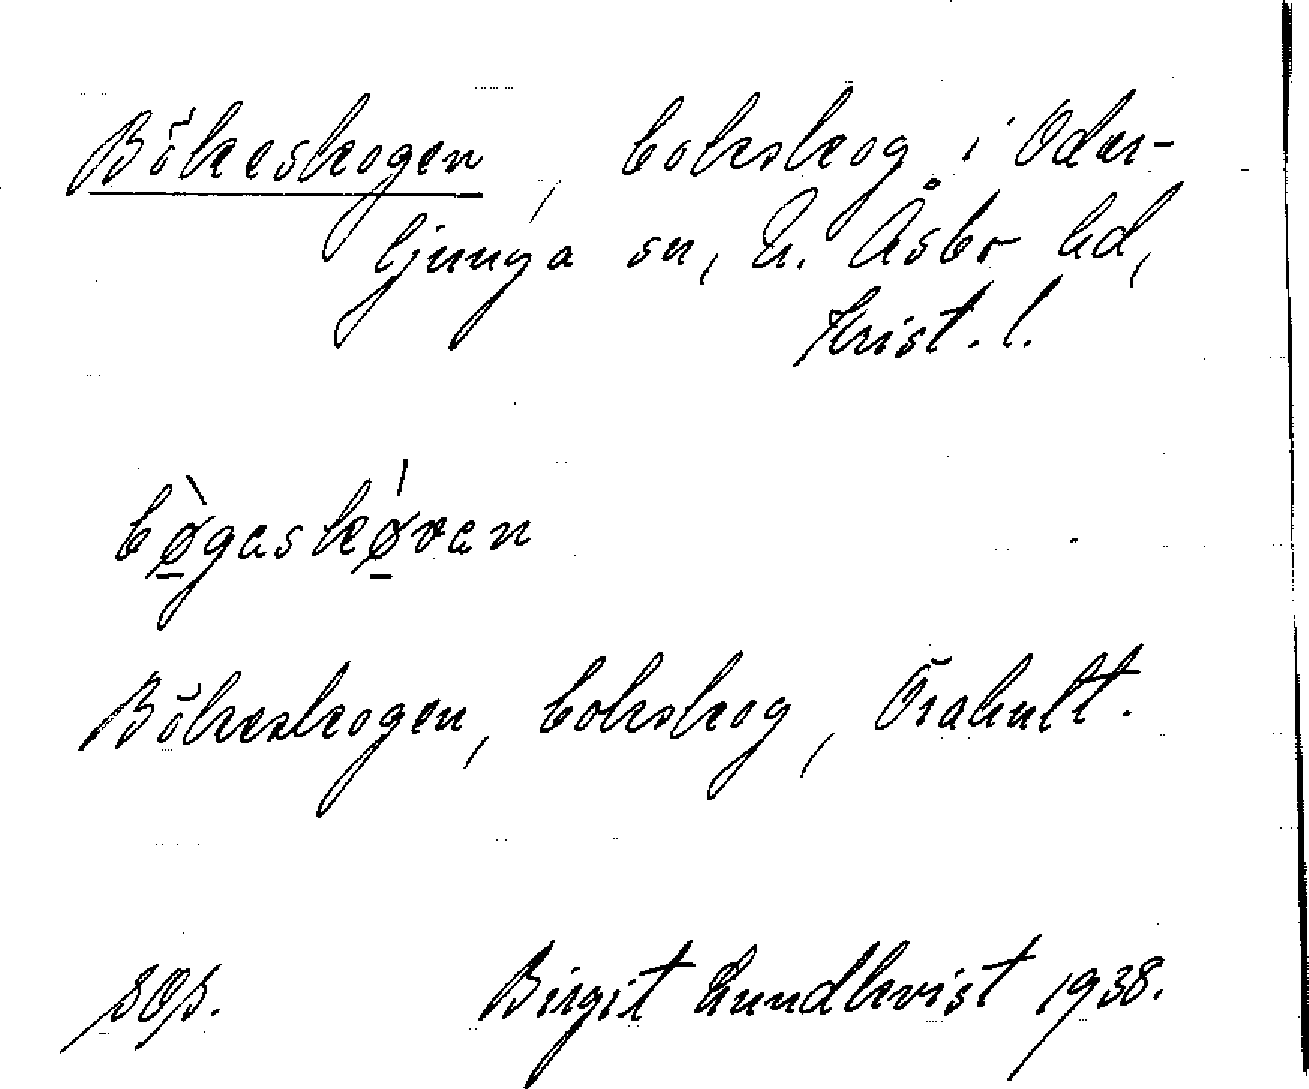 Bökeskogen, bokskog i Oder-
ljunga sn, N. Åsbo hd,
Krist. l.
bø̠̀gaskǿ̠van
Bökeskogen, bokskog, Örahult.
Birgit Lundkvist 1938.